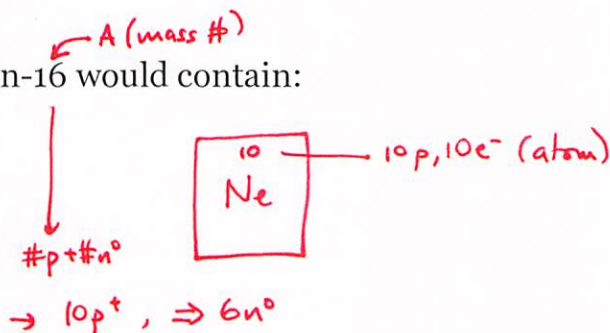 A (mass #)
n-16 would contain:
10 10p, 10e⁻ (atom)
Ne
#p+#n°
→ 10p⁺, ⇒ 6n°